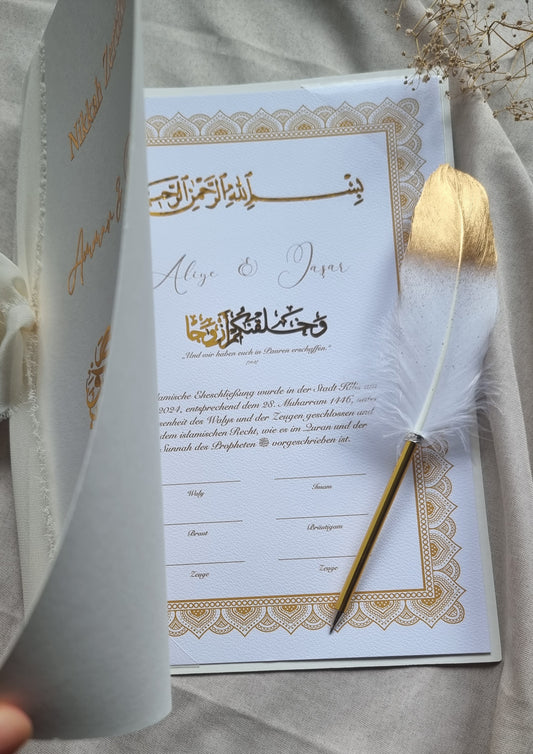 Nikkah
بِسْمِ اللهِ الرَّحْمٰنِ الرَّحِيمِ
Aliye & Yaşar
وَخَلَقْنَاكُمْ أَزْوَاجًا
„Und wir haben euch in Paaren erschaffen."
islamische Eheschließung wurde in der Stadt Köln am
2024, entsprechend dem 28. Muharram 1446, unter
senheit des Walys und der Zeugen geschlossen und
dem islamischen Recht, wie es im Quran und der
Sunnah des Propheten ﷺ vorgeschrieben ist.
Waly Imam
Braut Bräutigam
Zeuge Zeuge